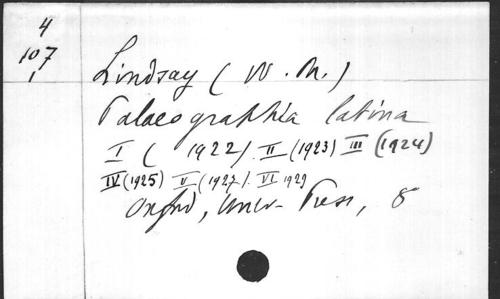 4
107
1
Lindsay (W. M.)
Palaeographia latina
I ( 1922). II (1923) III (1924)
IV (1925) V (1927). VI 1929
Oxford, Univ. Press, 8